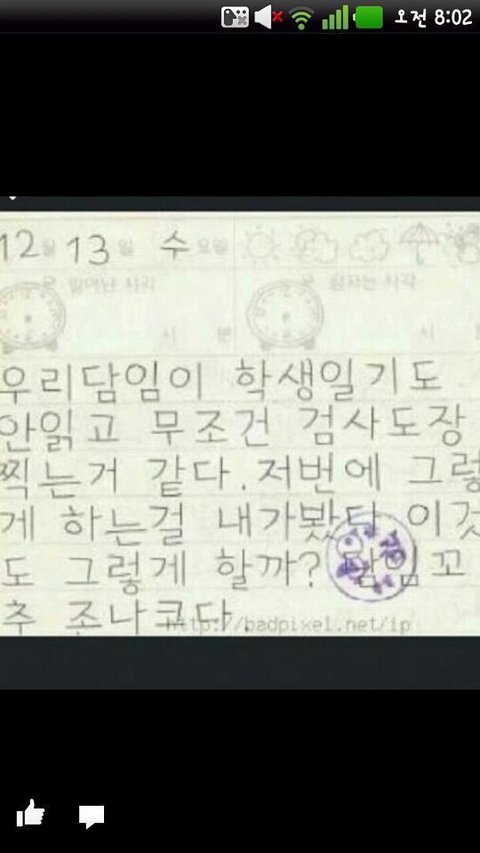 오전 8:02
12월 13일 수요일
일어난 시각
잠자는 시각
시 분
시
우리담임이 학생일기도
안읽고 무조건 검사도장
찍는거 같다.저번에 그렇
게 하는걸 내가봤다 이것
도 그렇게 할까? 담임꼬
추 조나크다.
http://badpixel.net/ip